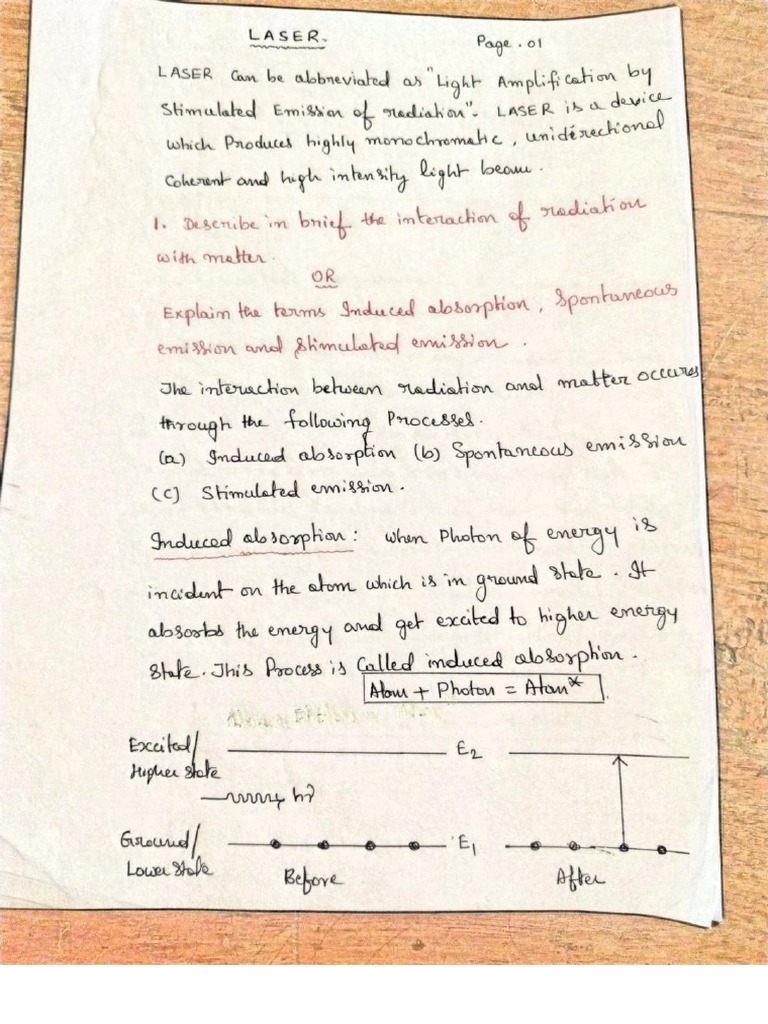 LASER.
Page.01
LASER Can be abbreviated as "Light Amplification by
Stimulated Emission of radiation". LASER is a device
which Produces highly monochromatic, unidirectional
Coherent and high intensity light beam.
1. Describe in brief the interaction of radiation
with matter.
OR
Explain the terms Induced absorption, Spontaneous
emission and Stimulated emission.
The interaction between radiation and matter occures
through the following Processes.
(a) Induced absorption (b) Spontaneous emission
(C) Stimulated emission.
Induced absorption: when Photon of energy is
incident on the atom which is in ground state. It
absorbs the energy and get excited to higher energy
State. This Process is Called induced absorption.
Atom + Photon = Atom*.
Excited/ E2
Higher state
hν
Ground/ E1
Lower State
Before After